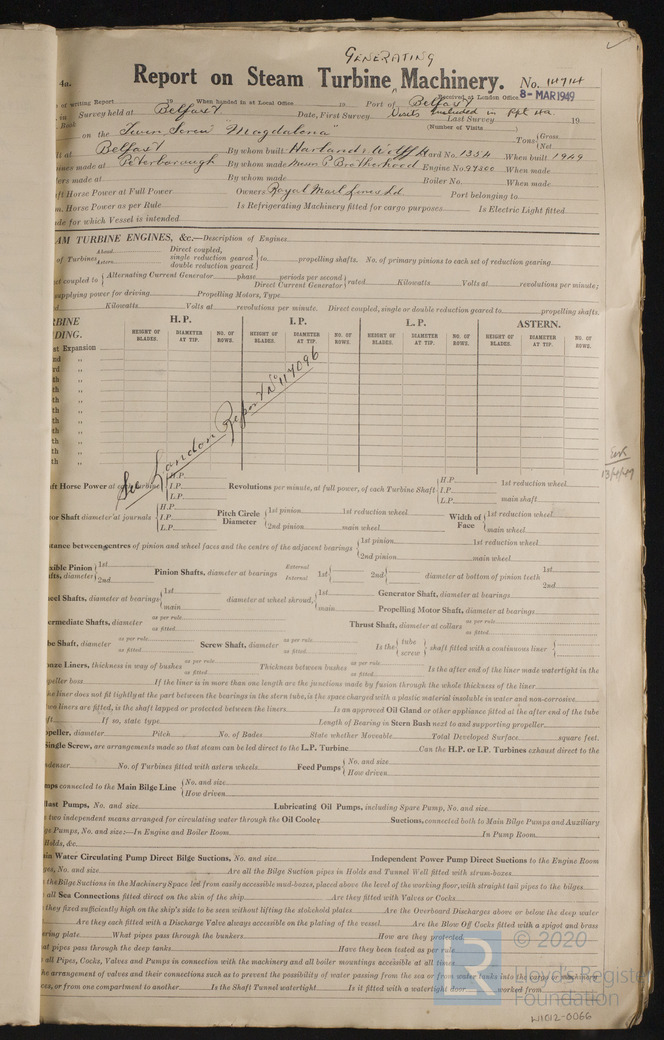 GENERATING
4a. Report on Steam Turbine ^ Machinery. No. 14714
of writing Report 19 When handed in at Local Office 19 Port of Belfast Received at London Office 8-MAR 1949
in Survey held at Belfast Date, First Survey Visits included in Rpt 4a. Last Survey 19
Book. (Number of Visits)
on the Twin Screw "Magdalena" Tons { Gross Net
lt at Belfast By whom built Harland & Wolff Ltd Yard No. 1354 When built 1949
ines made at Peterborough By whom made Messrs P. Brotherhood Engine No. When made
lers made at By whom made Boiler No. When made
aft Horse Power at Full Power Owners Royal Mail Lines Ltd Port belonging to
m. Horse Power as per Rule Is Refrigerating Machinery fitted for cargo purposes Is Electric Light fitted
de for which Vessel is intended
AM TURBINE ENGINES, &c.—Description of Engines
of Turbines Ahead Astern Direct coupled, single reduction geared double reduction geared } to propelling shafts. No. of primary pinions to each set of reduction gearing
ct coupled to { Alternating Current Generator phase periods per second Direct Current Generator } rated Kilowatts Volts at revolutions per minute;
supplying power for driving Propelling Motors, Type
d Kilowatts Volts at revolutions per minute. Direct coupled, single or double reduction geared to propelling shafts.
RBINE H.P. I.P. L.P. ASTERN.
DING. HEIGHT OF BLADES. DIAMETER AT TIP. NO. OF ROWS. HEIGHT OF BLADES. DIAMETER AT TIP. NO. OF ROWS. HEIGHT OF BLADES. DIAMETER AT TIP. NO. OF ROWS. HEIGHT OF BLADES. DIAMETER AT TIP. NO. OF ROWS.
st Expansion
nd „
rd „
th „
th „
th „
th „
th „
th „
th „
th „
th „
See London Report No 117096
13/4/49
aft Horse Power at each turbine { H.P. I.P. L.P. Revolutions per minute, at full power, of each Turbine Shaft { H.P. I.P. L.P. 1st reduction wheel main shaft
tor Shaft diameter at journals { H.P. I.P. L.P. Pitch Circle Diameter { 1st pinion 1st reduction wheel 2nd pinion main wheel Width of Face { 1st reduction wheel main wheel
stance between centres of pinion and wheel faces and the centre of the adjacent bearings { 1st pinion 1st reduction wheel 2nd pinion main wheel
xible Pinion fts, diameter { 1st 2nd Pinion Shafts, diameter at bearings External Internal 1st 2nd diameter at bottom of pinion teeth 1st 2nd
eel Shafts, diameter at bearings { 1st main diameter at wheel shroud, { 1st main Generator Shaft, diameter at bearings
Propelling Motor Shaft, diameter at bearings
ermediate Shafts, diameter as per rule as fitted Thrust Shaft, diameter at collars as per rule as fitted
be Shaft, diameter as per rule as fitted Screw Shaft, diameter as per rule as fitted Is the { tube screw } shaft fitted with a continuous liner {
onze Liners, thickness in way of bushes as per rule as fitted Thickness between bushes as per rule as fitted Is the after end of the liner made watertight in the
opeller boss If the liner is in more than one length are the junctions made by fusion through the whole thickness of the liner
he liner does not fit tightly at the part between the bearings in the stern tube, is the space charged with a plastic material insoluble in water and non-corrosive
wo liners are fitted, is the shaft lapped or protected between the liners Is an approved Oil Gland or other appliance fitted at the after end of the tube
ft If so, state type Length of Bearing in Stern Bush next to and supporting propeller
opeller, diameter Pitch No. of Blades State whether Moveable Total Developed Surface square feet.
Single Screw, are arrangements made so that steam can be led direct to the L.P. Turbine Can the H.P. or I.P. Turbines exhaust direct to the
ndenser No. of Turbines fitted with astern wheels Feed Pumps { No. and size How driven
mps connected to the Main Bilge Line { No. and size How driven
llast Pumps, No. and size Lubricating Oil Pumps, including Spare Pump, No. and size
e two independent means arranged for circulating water through the Oil Cooler Suctions, connected both to Main Bilge Pumps and Auxiliary
ge Pumps, No. and size:—In Engine and Boiler Room In Pump Room
Holds, &c.
ain Water Circulating Pump Direct Bilge Suctions, No. and size Independent Power Pump Direct Suctions to the Engine Room
ges, No. and size Are all the Bilge Suction pipes in Holds and Tunnel Well fitted with strum-boxes
the Bilge Suctions in the Machinery Space led from easily accessible mud-boxes, placed above the level of the working floor, with straight tail pipes to the bilges
all Sea Connections fitted direct on the skin of the ship Are they fitted with Valves or Cocks
they fixed sufficiently high on the ship's side to be seen without lifting the stokehold plates Are the Overboard Discharges above or below the deep water
Are they each fitted with a Discharge Valve always accessible on the plating of the vessel Are the Blow Off Cocks fitted with a spigot and brass
ering plate What pipes pass through the bunkers How are they protected
at pipes pass through the deep tanks Have they been tested as per rule
all Pipes, Cocks, Valves and Pumps in connection with the machinery and all boiler mountings accessible at all times
he arrangement of valves and their connections such as to prevent the possibility of water passing from the sea or from water tanks into the cargo or machinery
ces, or from one compartment to another Is the Shaft Tunnel watertight Is it fitted with a watertight door worked from
© 2020
Lloyd's Register
Foundation
W1012-0066